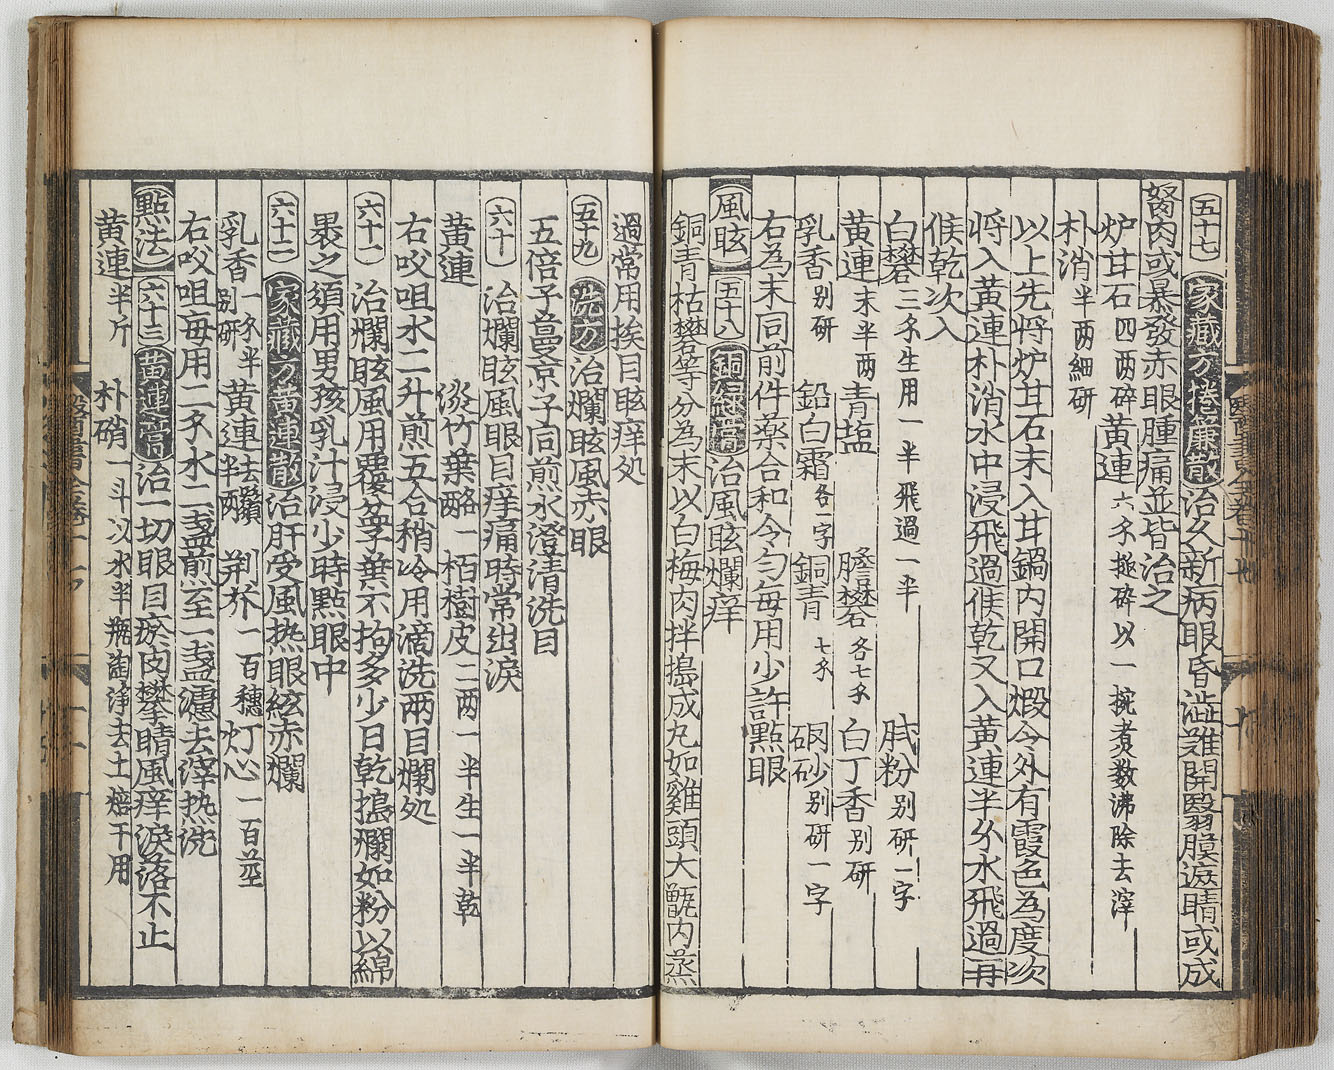 五十七 家藏方捲簾散 治久新病眼昏澁難開翳膜遮睛或成
胬肉或暴發赤眼腫痛並皆治之
炉甘石四两碎 黄連六分搥碎以一椀煮数沸除去滓
朴消半两細研
以上先将炉甘石末入甘鍋内開口煅令外有霞色為度次
将入黄連朴消水中浸飛過候乾又入黄連半分水飛過再
候乾次入
白礬三分生用一半飛過一半 腻粉别研一字
黄連末半两 青塩 膽礬各七分 白丁香别研
乳香别研 鉛白霜各一字 銅青七分 硇砂别研一字
右為末同前件藥合和令匀每用少許點眼
風眩 五十八 銅緑膏 治風眩爛痒
銅青枯礬等分為末以白梅肉拌搗成丸如雞頭大甑内蒸
過常用挨目眩痒処
五十九 洗方 治爛眩風赤眼
五倍子蔓京子同煎水澄清洗目
六十 治爛眩風眼目痒痛時常出淚
黄連 淡竹葉酪一 栢樹皮二两一半生一半乾
右㕮咀水二升煎五合稍冷用滴洗兩目爛処
六十一 治爛眩風用覆盆子葉不拘多少日乾搗爛如粉以綿
褁之須用男孩乳汁浸少時點眼中
六十二 家藏方黄連散 治肝受風热眼絃赤爛
乳香一分半别研 黄連半两去鬚 荆芥一百穗 灯心一百莖
右㕮咀每用二分水二盞煎至一盞濾去滓热洗
點法 六十三 黄連膏 治一切眼目瘀肉攀睛風痒淚落不止
黄連半斤 朴硝一斗以水半瓶淘净去土焙干用